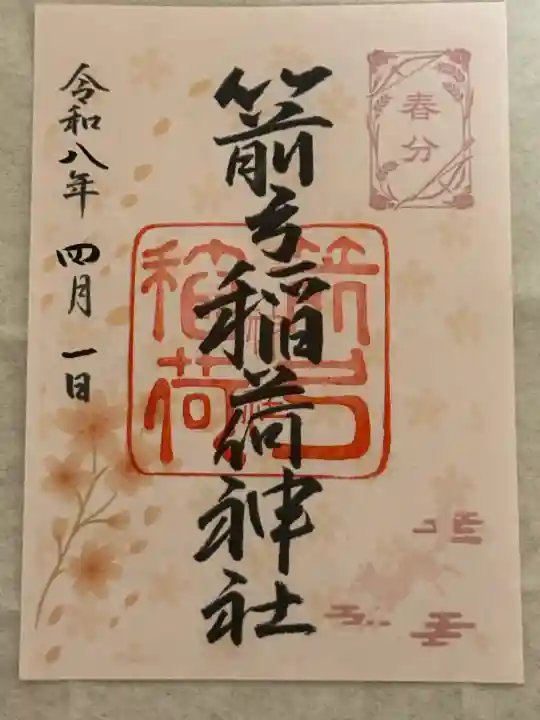 春分
箭弓稲荷神社
箭弓
稲荷
令和八年 四月 一日